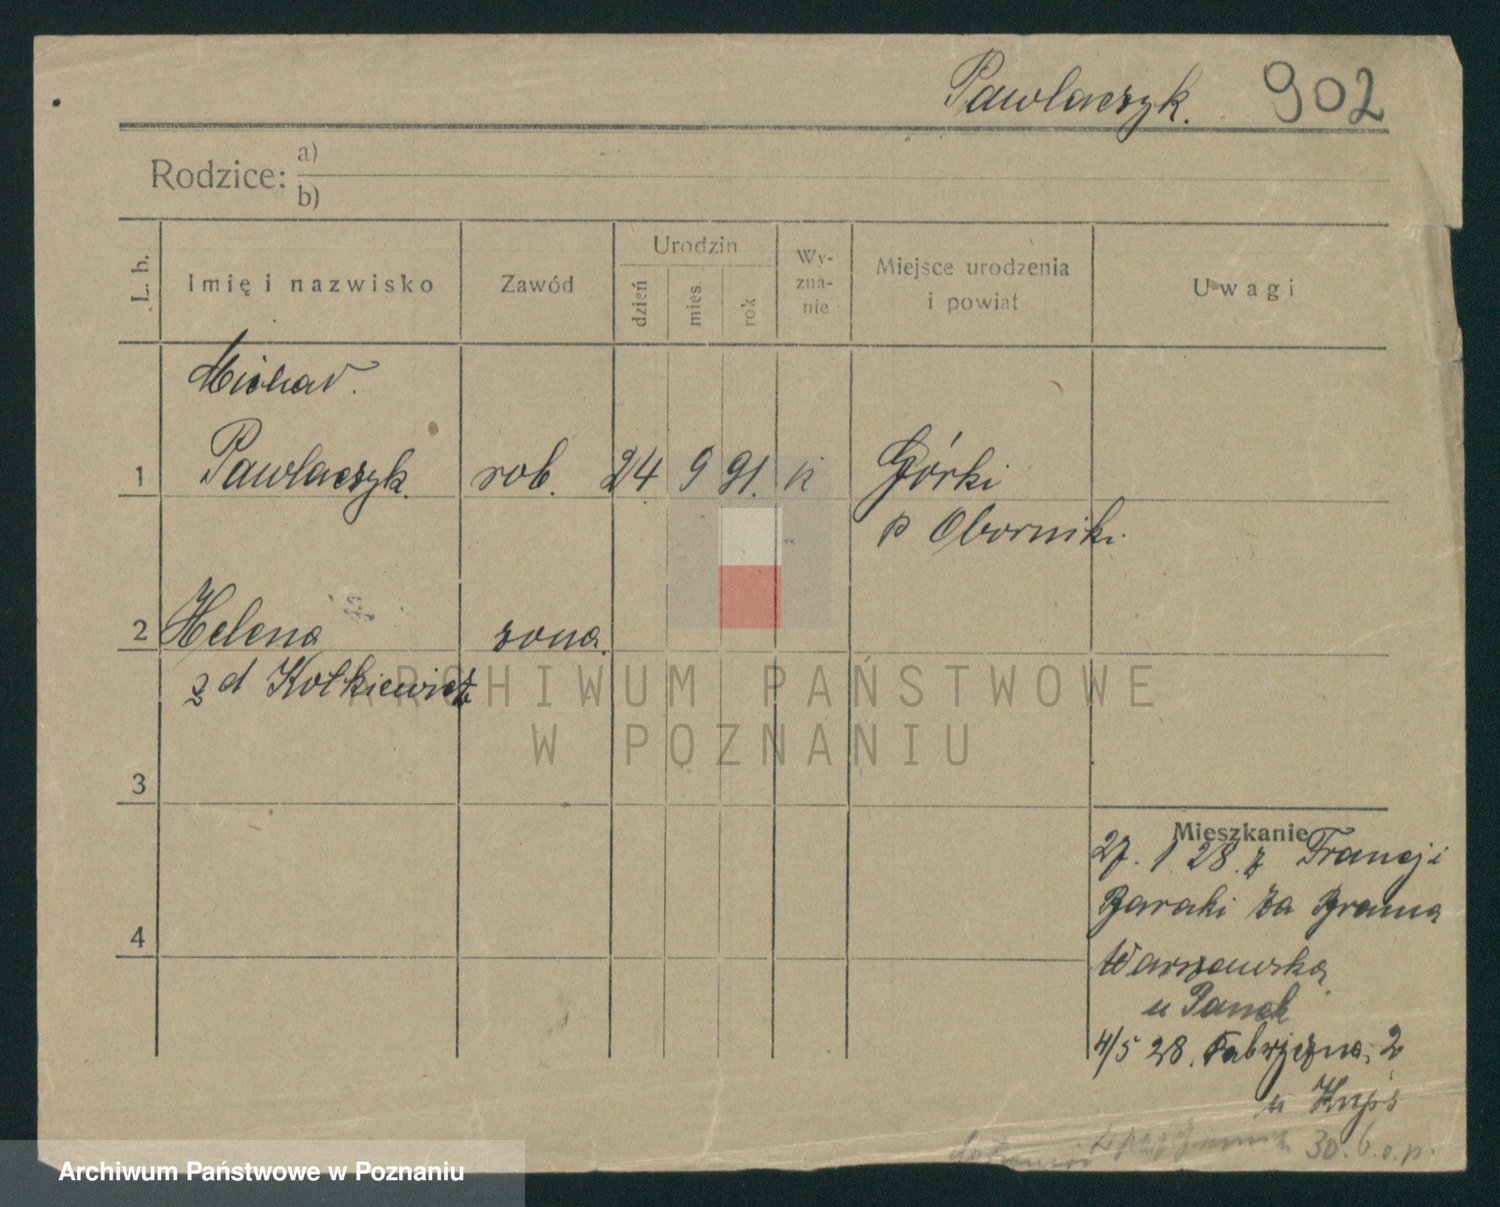 Pawlaczyk. 902
Rodzice: a)
b)
L. b. Imię i nazwisko Zawód Urodzin dzień mies. rok Wy-zna-nie Miejsce urodzenia i powiat Uwagi
Michał.
1 Pawlaczyk. rob. 24 9 91. k Górki
p Oborniki.
2 Helena żona.
z d Kotkiewicz
ARCHIWUM PAŃSTWOWE
W POZNANIU
3
Mieszkanie
27. 1 28. z Francji
Baraki za Bramą
4
Warszawską
u Panek
4/5 28. Fabryczna, 2
u
30. 6. o. p.
Archiwum Państwowe w Poznaniu